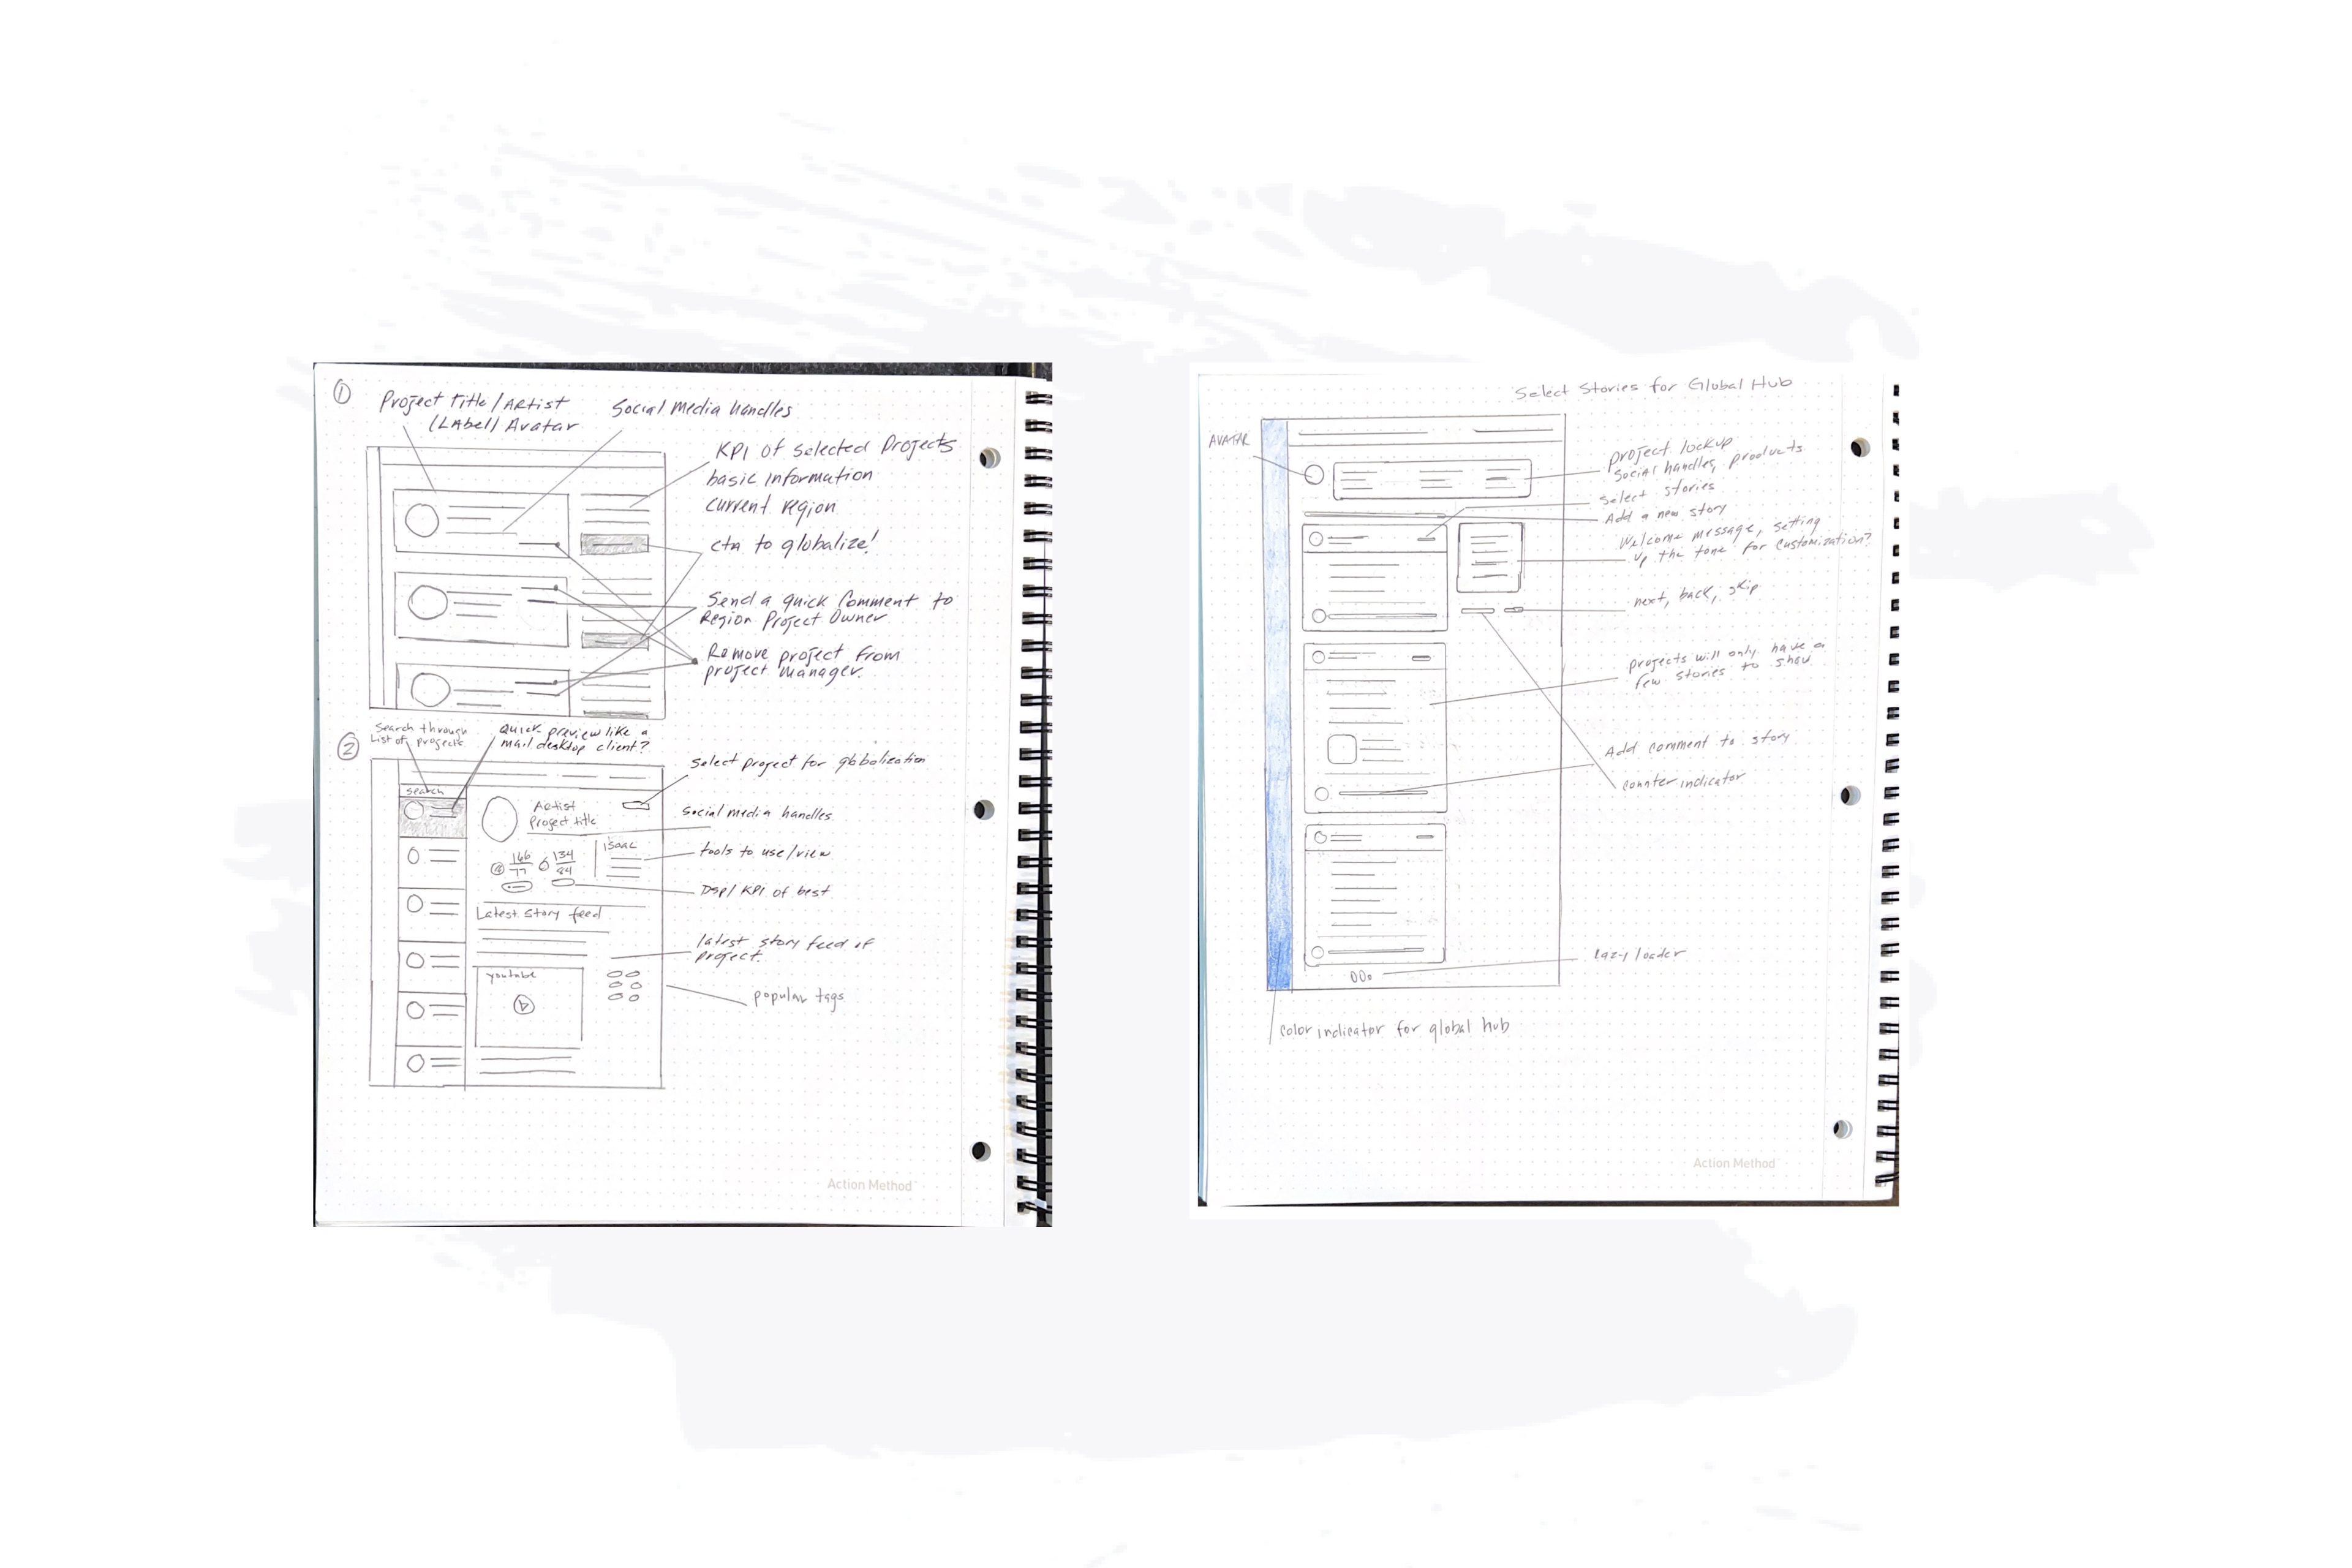 ①
Project Title/Artist
(Label) Avatar
Social Media handles
KPI of Selected Projects
basic information
current region
cta to globalize!
Send a quick Comment to
Region Project Owner
Remove project from
project manager.
②
Search through
List of projects
Quick preview like a
mail desktop client?
Select project for globalization
Search
Artist
Project title
Social media handles
166
77
134
84
tools to use/view
DSP/ KPI of best
Latest Story feed
latest story feed of
project.
youtube
popular tags
Action Method
Select Stories for Global Hub
AVATAR
project lockup
Social handles, products
Select stories
Add a new story
Welcome message, setting
up the tone for customization?
next, back, skip
projects will only have a
few stories to show
Add comment to story
counter indicator
lazy loader
color indicator for global hub
Action Method